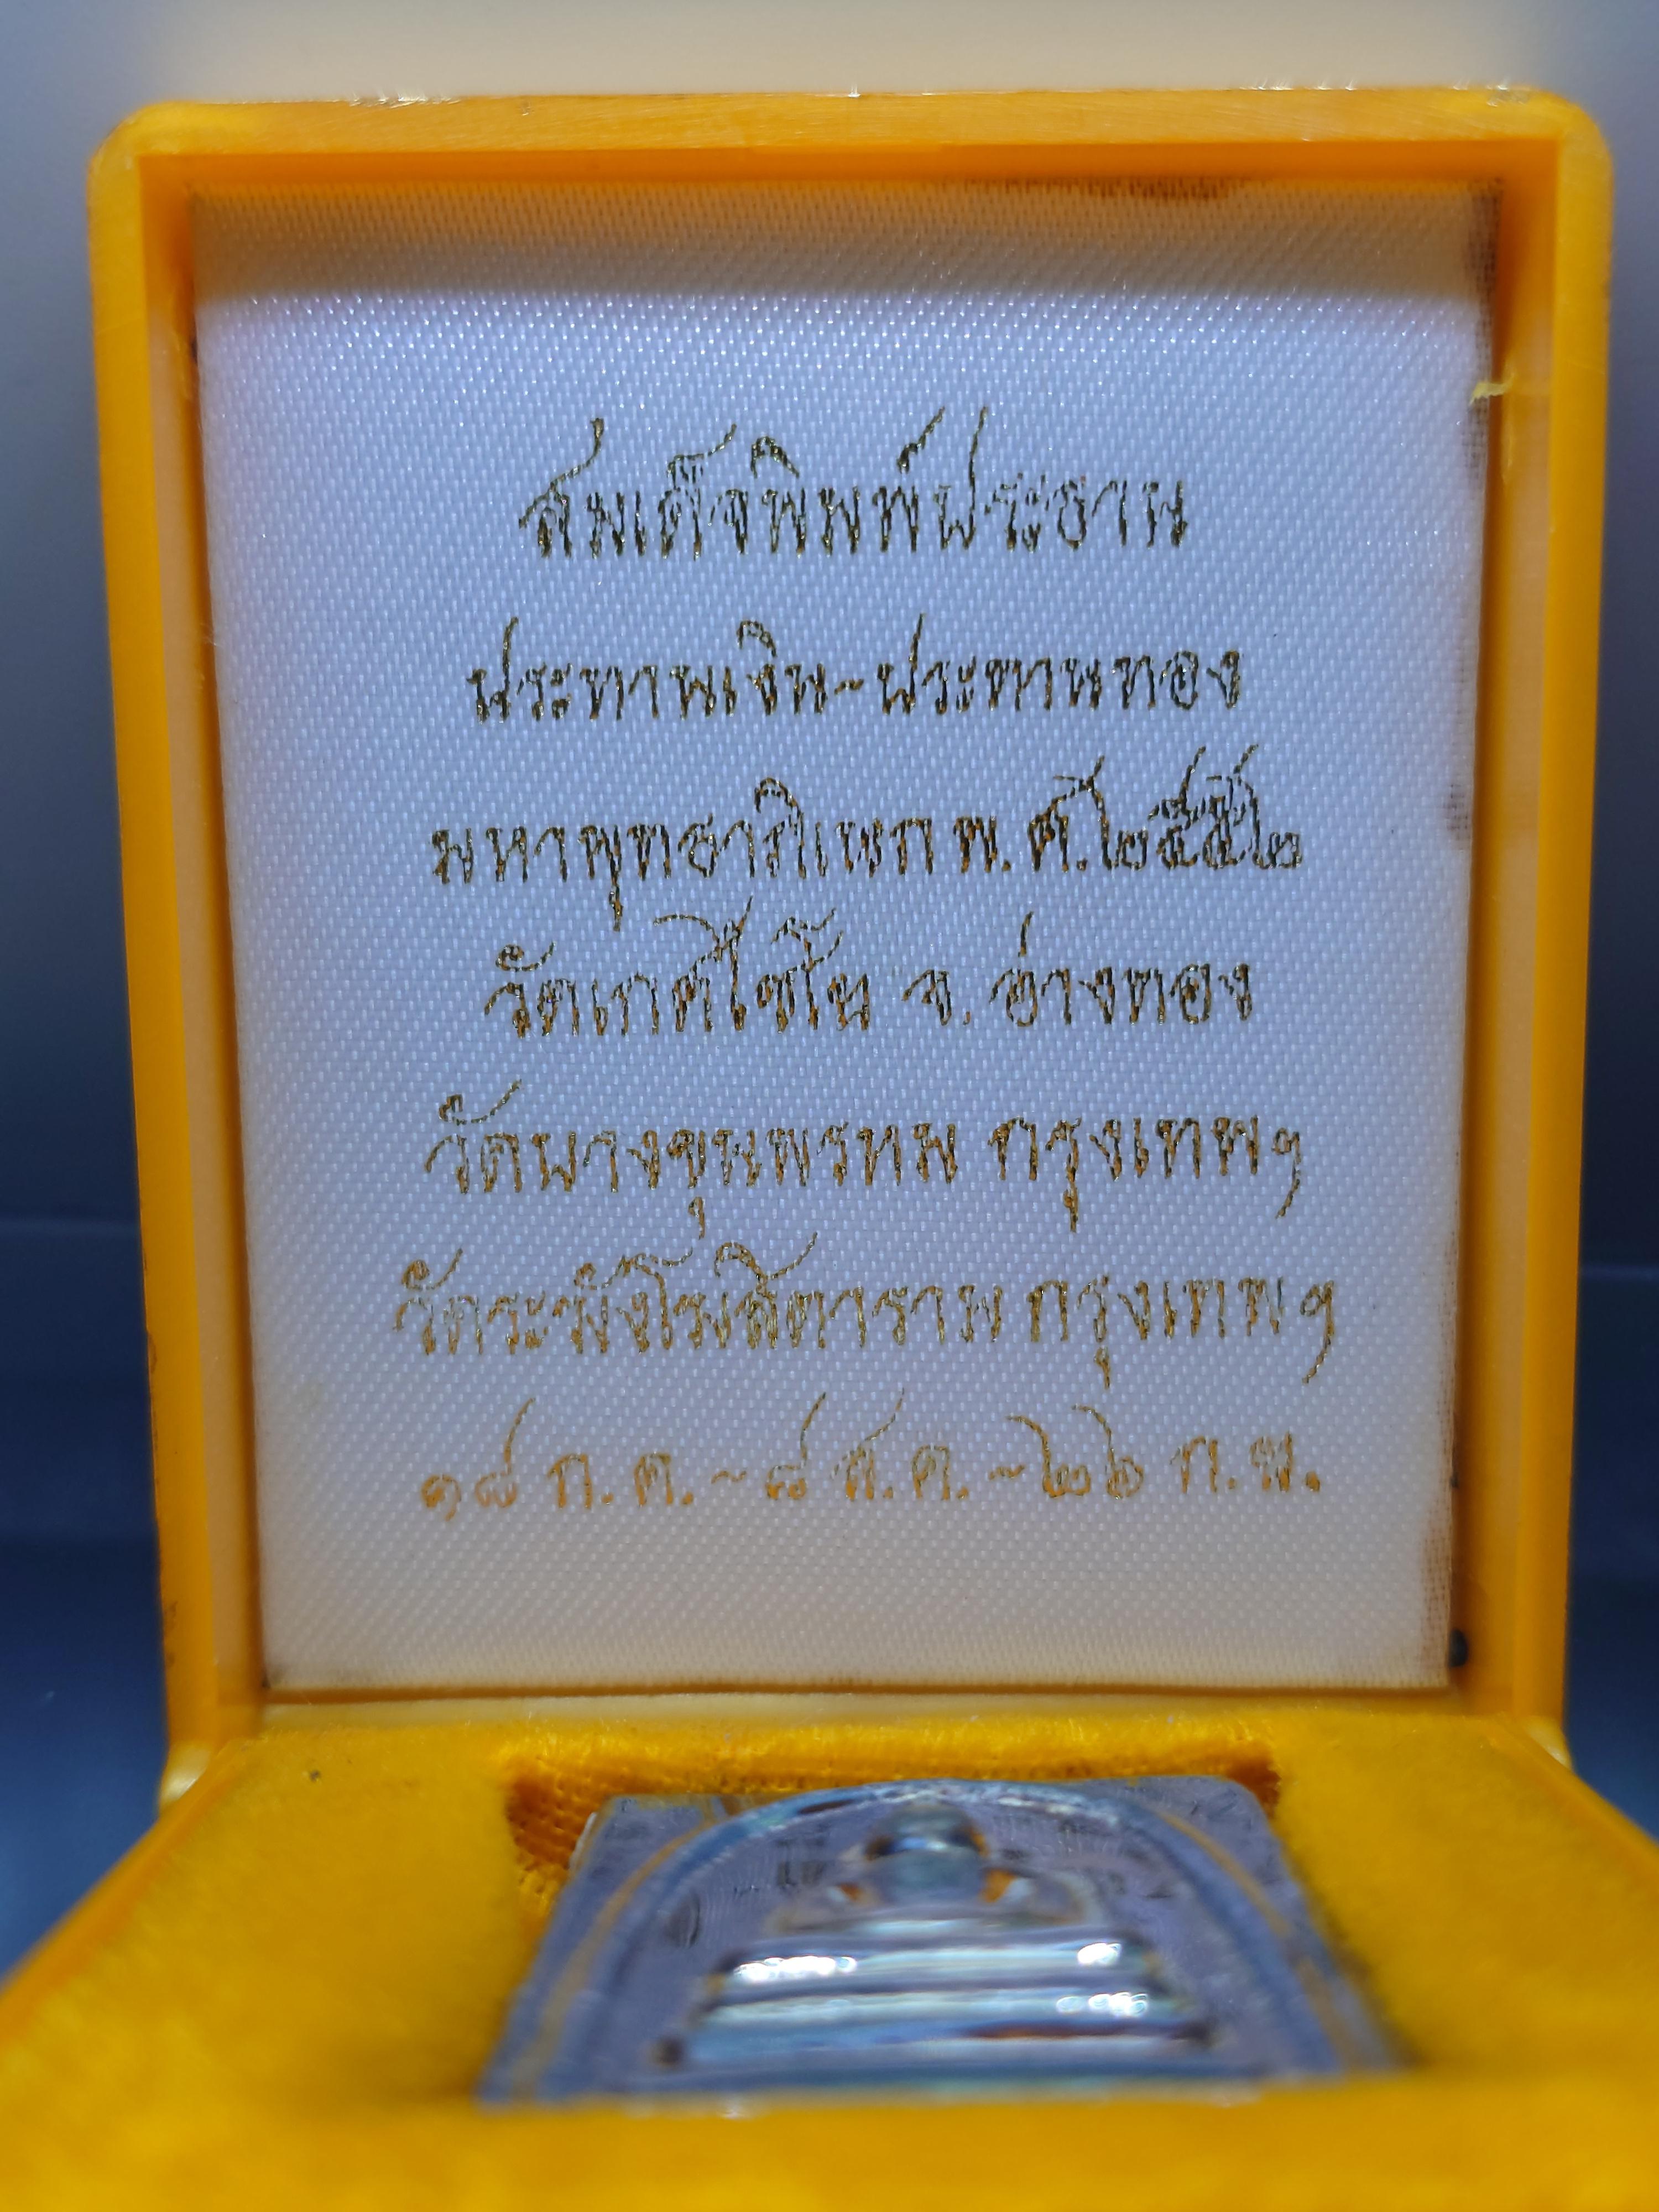 สมเด็จพิมพ์ประธาน
ประทานเงิน~ประทานทอง
มหาพุทธาภิเษก พ.ศ.๒๕๕๒
วัดเกศไชโย จ. อ่างทอง
วัดบางขุนพรหม กรุงเทพฯ
วัดระฆังโฆสิตาราม กรุงเทพฯ
๑๘ ก.ค.~๘ ส.ค.~๒๖ ก.พ.